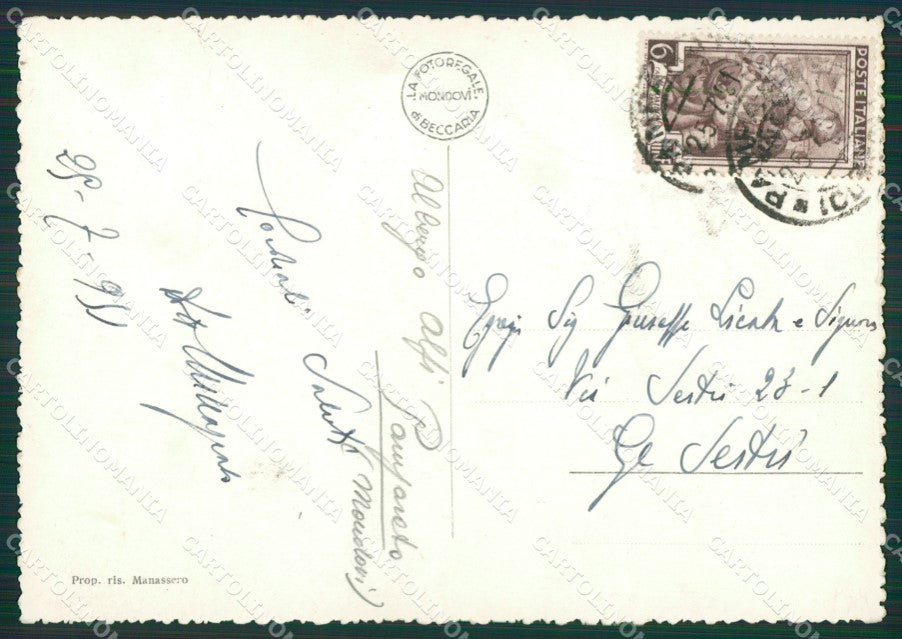 LA FOTOREGALE
MONDOVI
di BECCARIA
POSTE ITALIANE
6
25 7 51
25-7-951
Cordiali Saluti
Albergo Alpi Pamparato
(Mondovi)
Egregi Sig Giuseppe Licata e Signora
Via Sestri 23-1
Ge Sestri
Prop. ris. Manassero
CARTOLINOMANIA